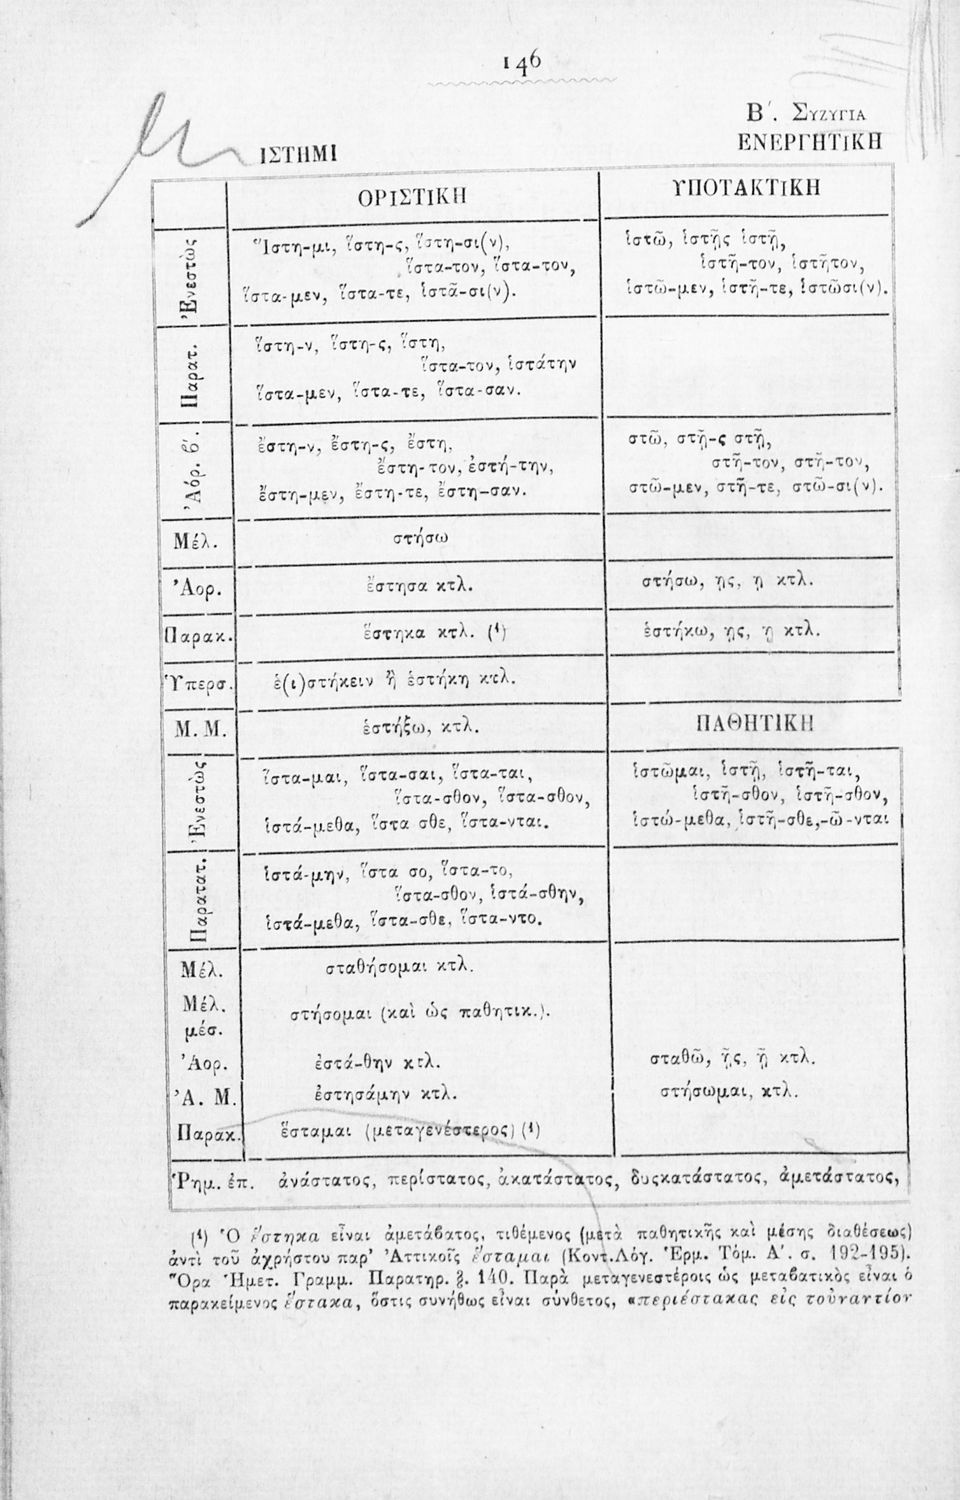 146
Β΄. ΣΥΖΥΓΙΑ
ΙΣΤΗΜΙ ΕΝΕΡΓΗΤΙΚΗ
ΟΡΙΣΤΙΚΗ ΥΠΟΤΑΚΤΙΚΗ
Ἐνεστὼς
Ἵστη-μι, ἵστη-ς, ἵστη-σι(ν),
ἵστα-τον, ἵστα-τον,
ἵστα-μεν, ἵστα-τε, ἱστᾶ-σι(ν).
ἱστῶ, ἱστῇς ἱστῇ,
ἱστῆ-τον, ἱστῆτον,
ἱστῶ-μεν, ἱστῆ-τε, ἱστῶσι(ν).
Παρατ.
ἵστη-ν, ἵστη-ς, ἵστη,
ἵστα-τον, ἱστάτην
ἵστα-μεν, ἵστα-τε, ἵστα-σαν.
Ἀόρ. β΄.
ἔστη-ν, ἔστη-ς, ἔστη,
ἔστη-τον, ἐστή-την,
ἔστη-μεν, ἔστη-τε, ἔστη-σαν.
στῶ, στῇ-ς στῇ,
στῆ-τον, στῆ-τον,
στῶ-μεν, στῆ-τε, στῶ-σι(ν).
Μέλ. στήσω
Ἀορ. ἔστησα κτλ. στήσω, ῃς, ῃ κτλ.
Παρακ. ἕστηκα κτλ. (¹) ἑστήκω, ῃς, ῃ κτλ.
Ὑπερσ. ἑ(ι)στήκειν ἢ ἑστήκη κτλ.
Μ. Μ. ἑστήξω, κτλ. ΠΑΘΗΤΙΚΗ
Ἐνεστὼς
ἵστα-μαι, ἵστα-σαι, ἵστα-ται,
ἵστα-σθον, ἵστα-σθον,
ἱστά-μεθα, ἵστα σθε, ἵστα-νται.
ἱστῶμαι, ἱστῇ, ἱστῆ-ται,
ἱστῆ-σθον, ἱστῆ-σθον,
ἱστώ-μεθα, ἱστῆ-σθε,-ῶ-νται
Παρατατ.
ἱστά-μην, ἵστα σο, ἵστα-το,
ἵστα-σθον, ἱστά-σθην,
ἱστά-μεθα, ἵστα-σθε, ἵστα-ντο.
Μέλ. σταθήσομαι κτλ.
Μέλ. μέσ. στήσομαι (καὶ ὡς παθητικ.).
Ἀορ. ἐστά-θην κτλ. σταθῶ, ῇς, ῇ κτλ.
Ἀ. Μ. ἐστησάμην κτλ. στήσωμαι, κτλ.
Παρακ. ἕσταμαι (μεταγενέστερος) (¹)
Ῥημ. ἐπ. ἀνάστατος, περίστατος, ἀκατάστατος, δυσκατάστατος, ἀμετάστατος,
(¹) Ὁ ἕστηκα εἶναι ἀμετάβατος, τιθέμενος (μετὰ παθητικῆς καὶ μέσης διαθέσεως)
ἀντὶ τοῦ ἀχρήστου παρ' Ἀττικοῖς ἕσταμαι (Κοντ.Λόγ. Ἑρμ. Τόμ. Α΄. σ. 192-195).
Ὅρα Ἡμετ. Γραμμ. Παρατηρ. §. 140. Παρὰ μεταγενεστέροις ὡς μεταβατικὸς εἶναι ὁ
παρακείμενος ἕστακα, ὅστις συνήθως εἶναι σύνθετος, «περιέστακας εἰς τοὐναντίον